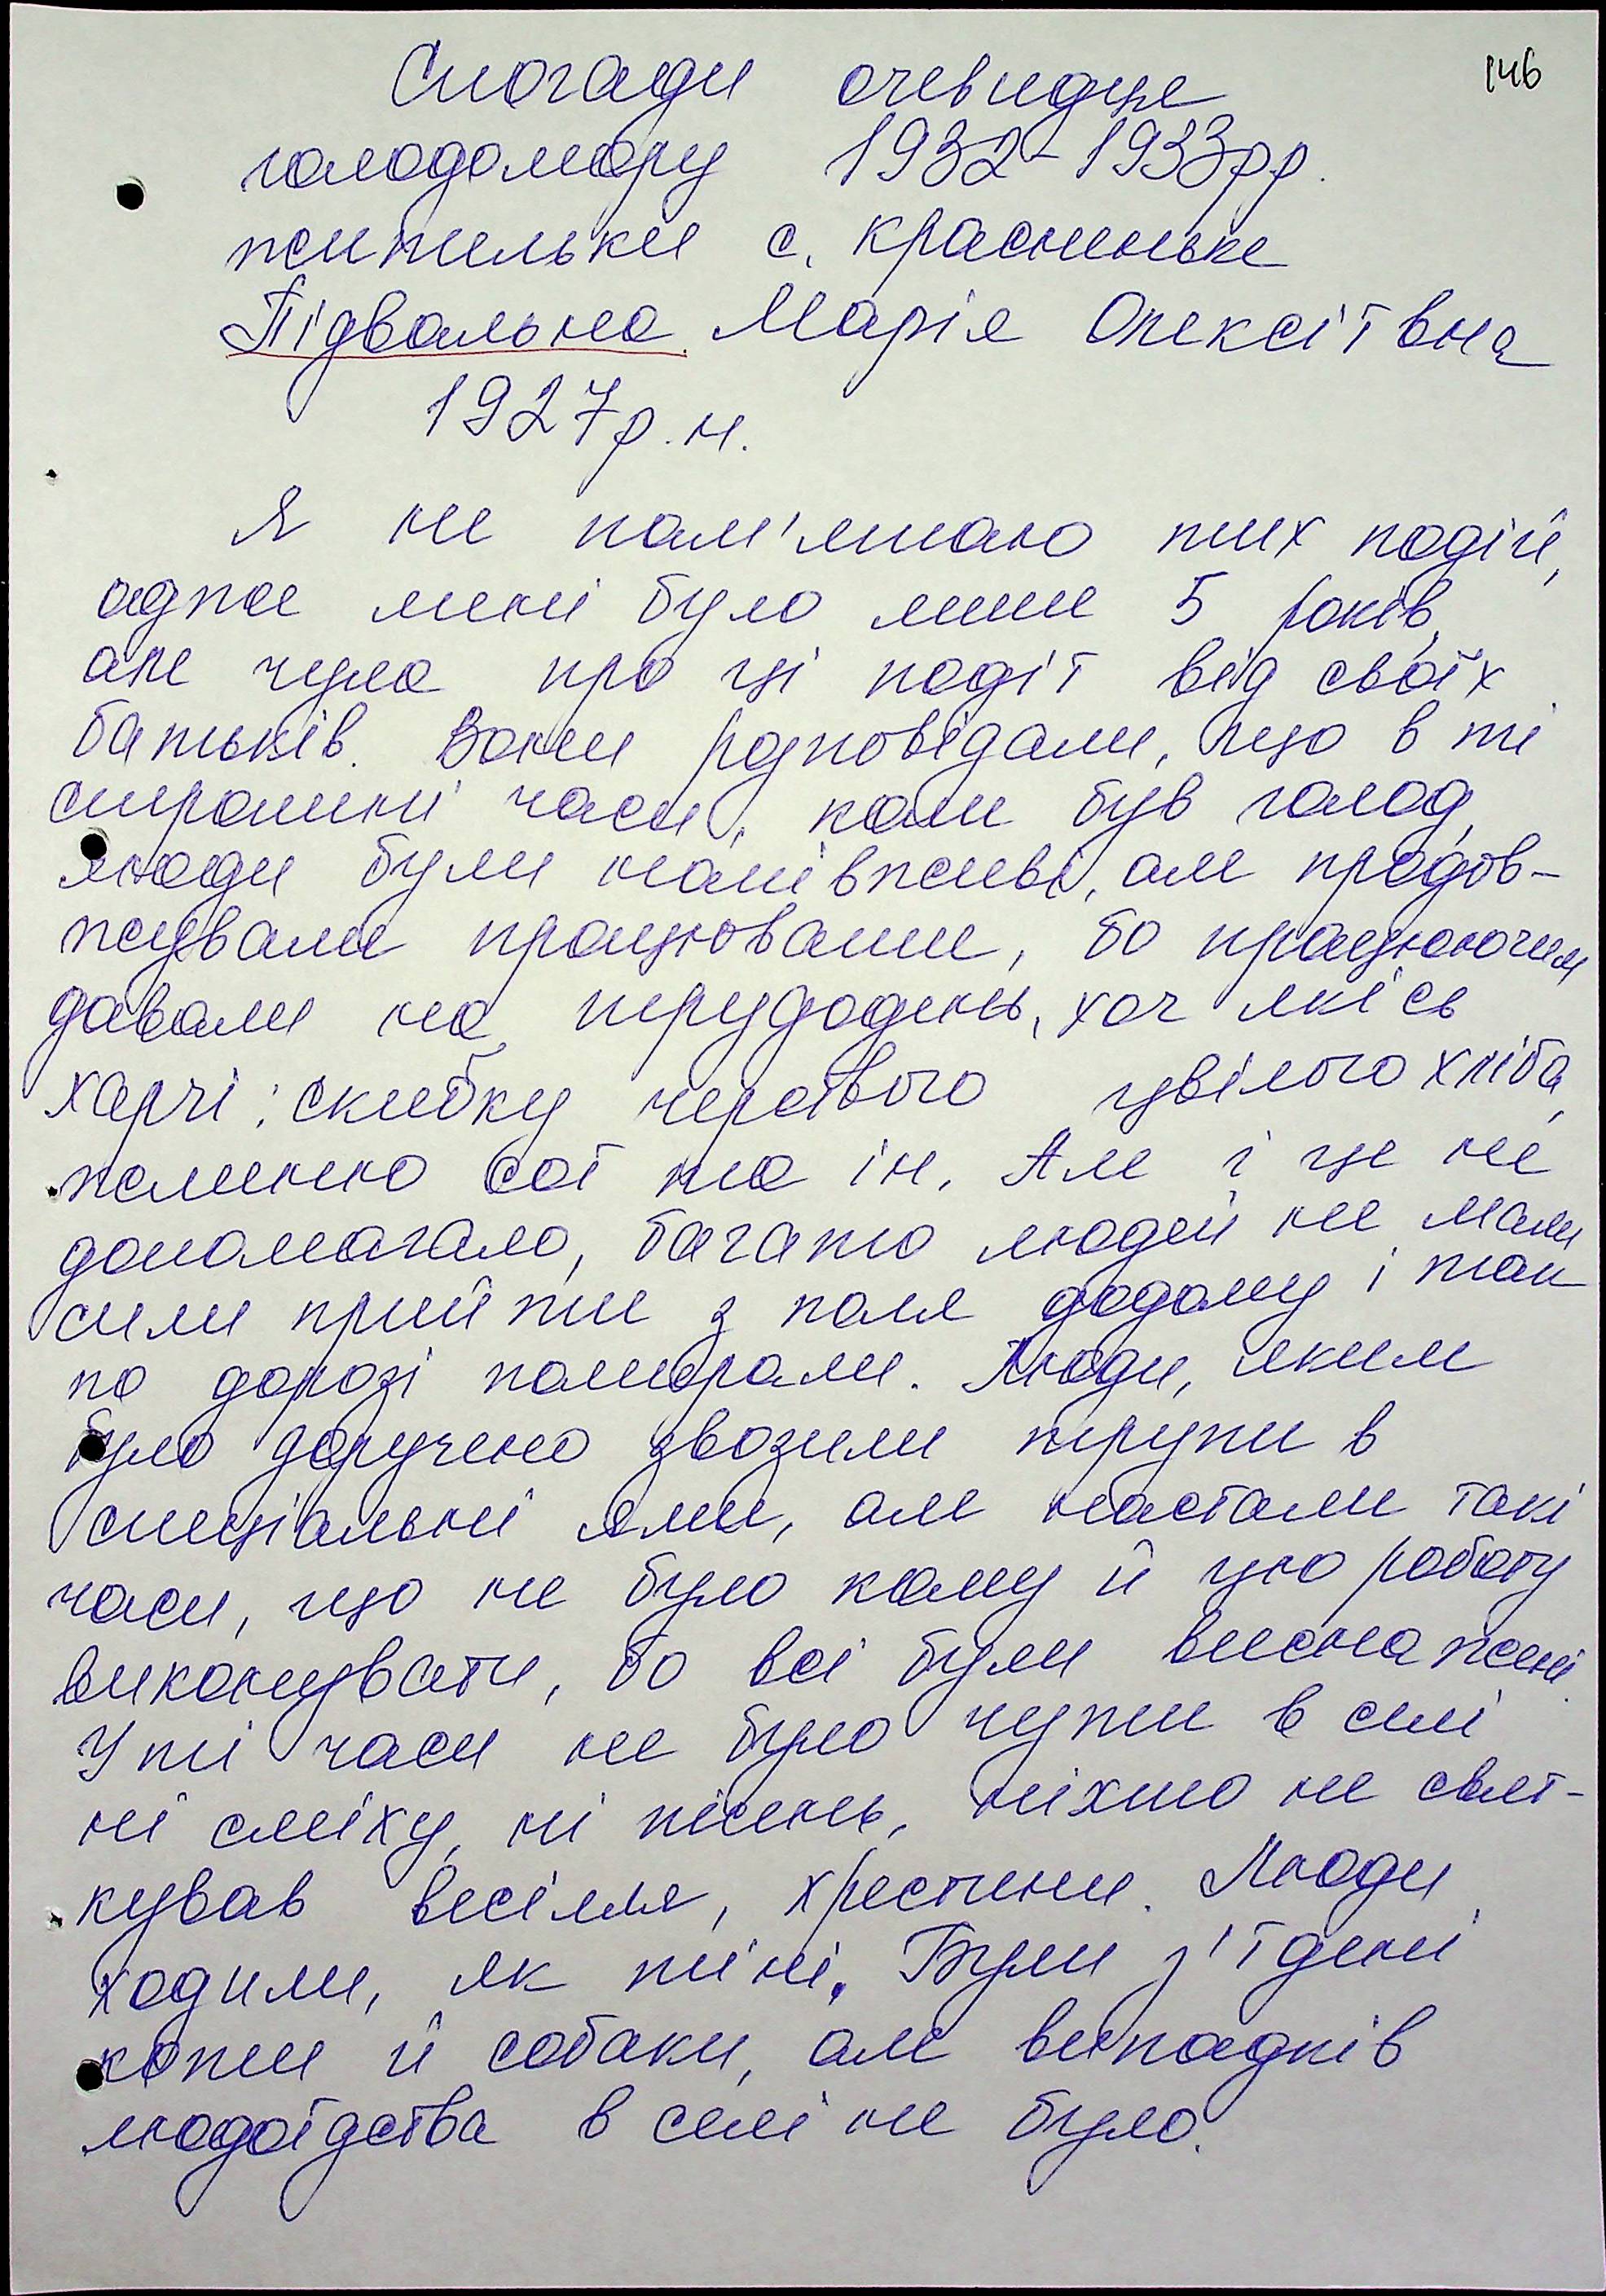 146
Спогади очевидця
голодомору 1932-1933рр.
жительки с. Красненьке
Підвальна Марія Олексіївна
1927р.н.
Я не пам'ятаю тих подій,
адже мені було лише 5 років,
але чула про ці події від своїх
батьків. Вони розповідали, що в ті
страшні часи, коли був голод,
люди були напівживі, але продов-
жували працювати, бо працюючим
давали на трудодень, хоч якісь
харчі: скибку черствого цвілого хліба,
жменю сої та ін. Але і це не
допомагало, багато людей не мали
сили прийти з поля додому і так
по дорозі помирали. Люди, яким
було доручено звозили трупи в
спеціальні ями, але настали такі
часи, що не було кому й цю роботу
виконувати, бо всі були виснажені.
У ті часи не було чути в селі
ні сміху, ні пісень, ніхто не свят-
кував весілля, хрестини. Люди
ходили, як тіні. Були з'їдені
коти й собаки, але випадків
людоїдства в селі не було.